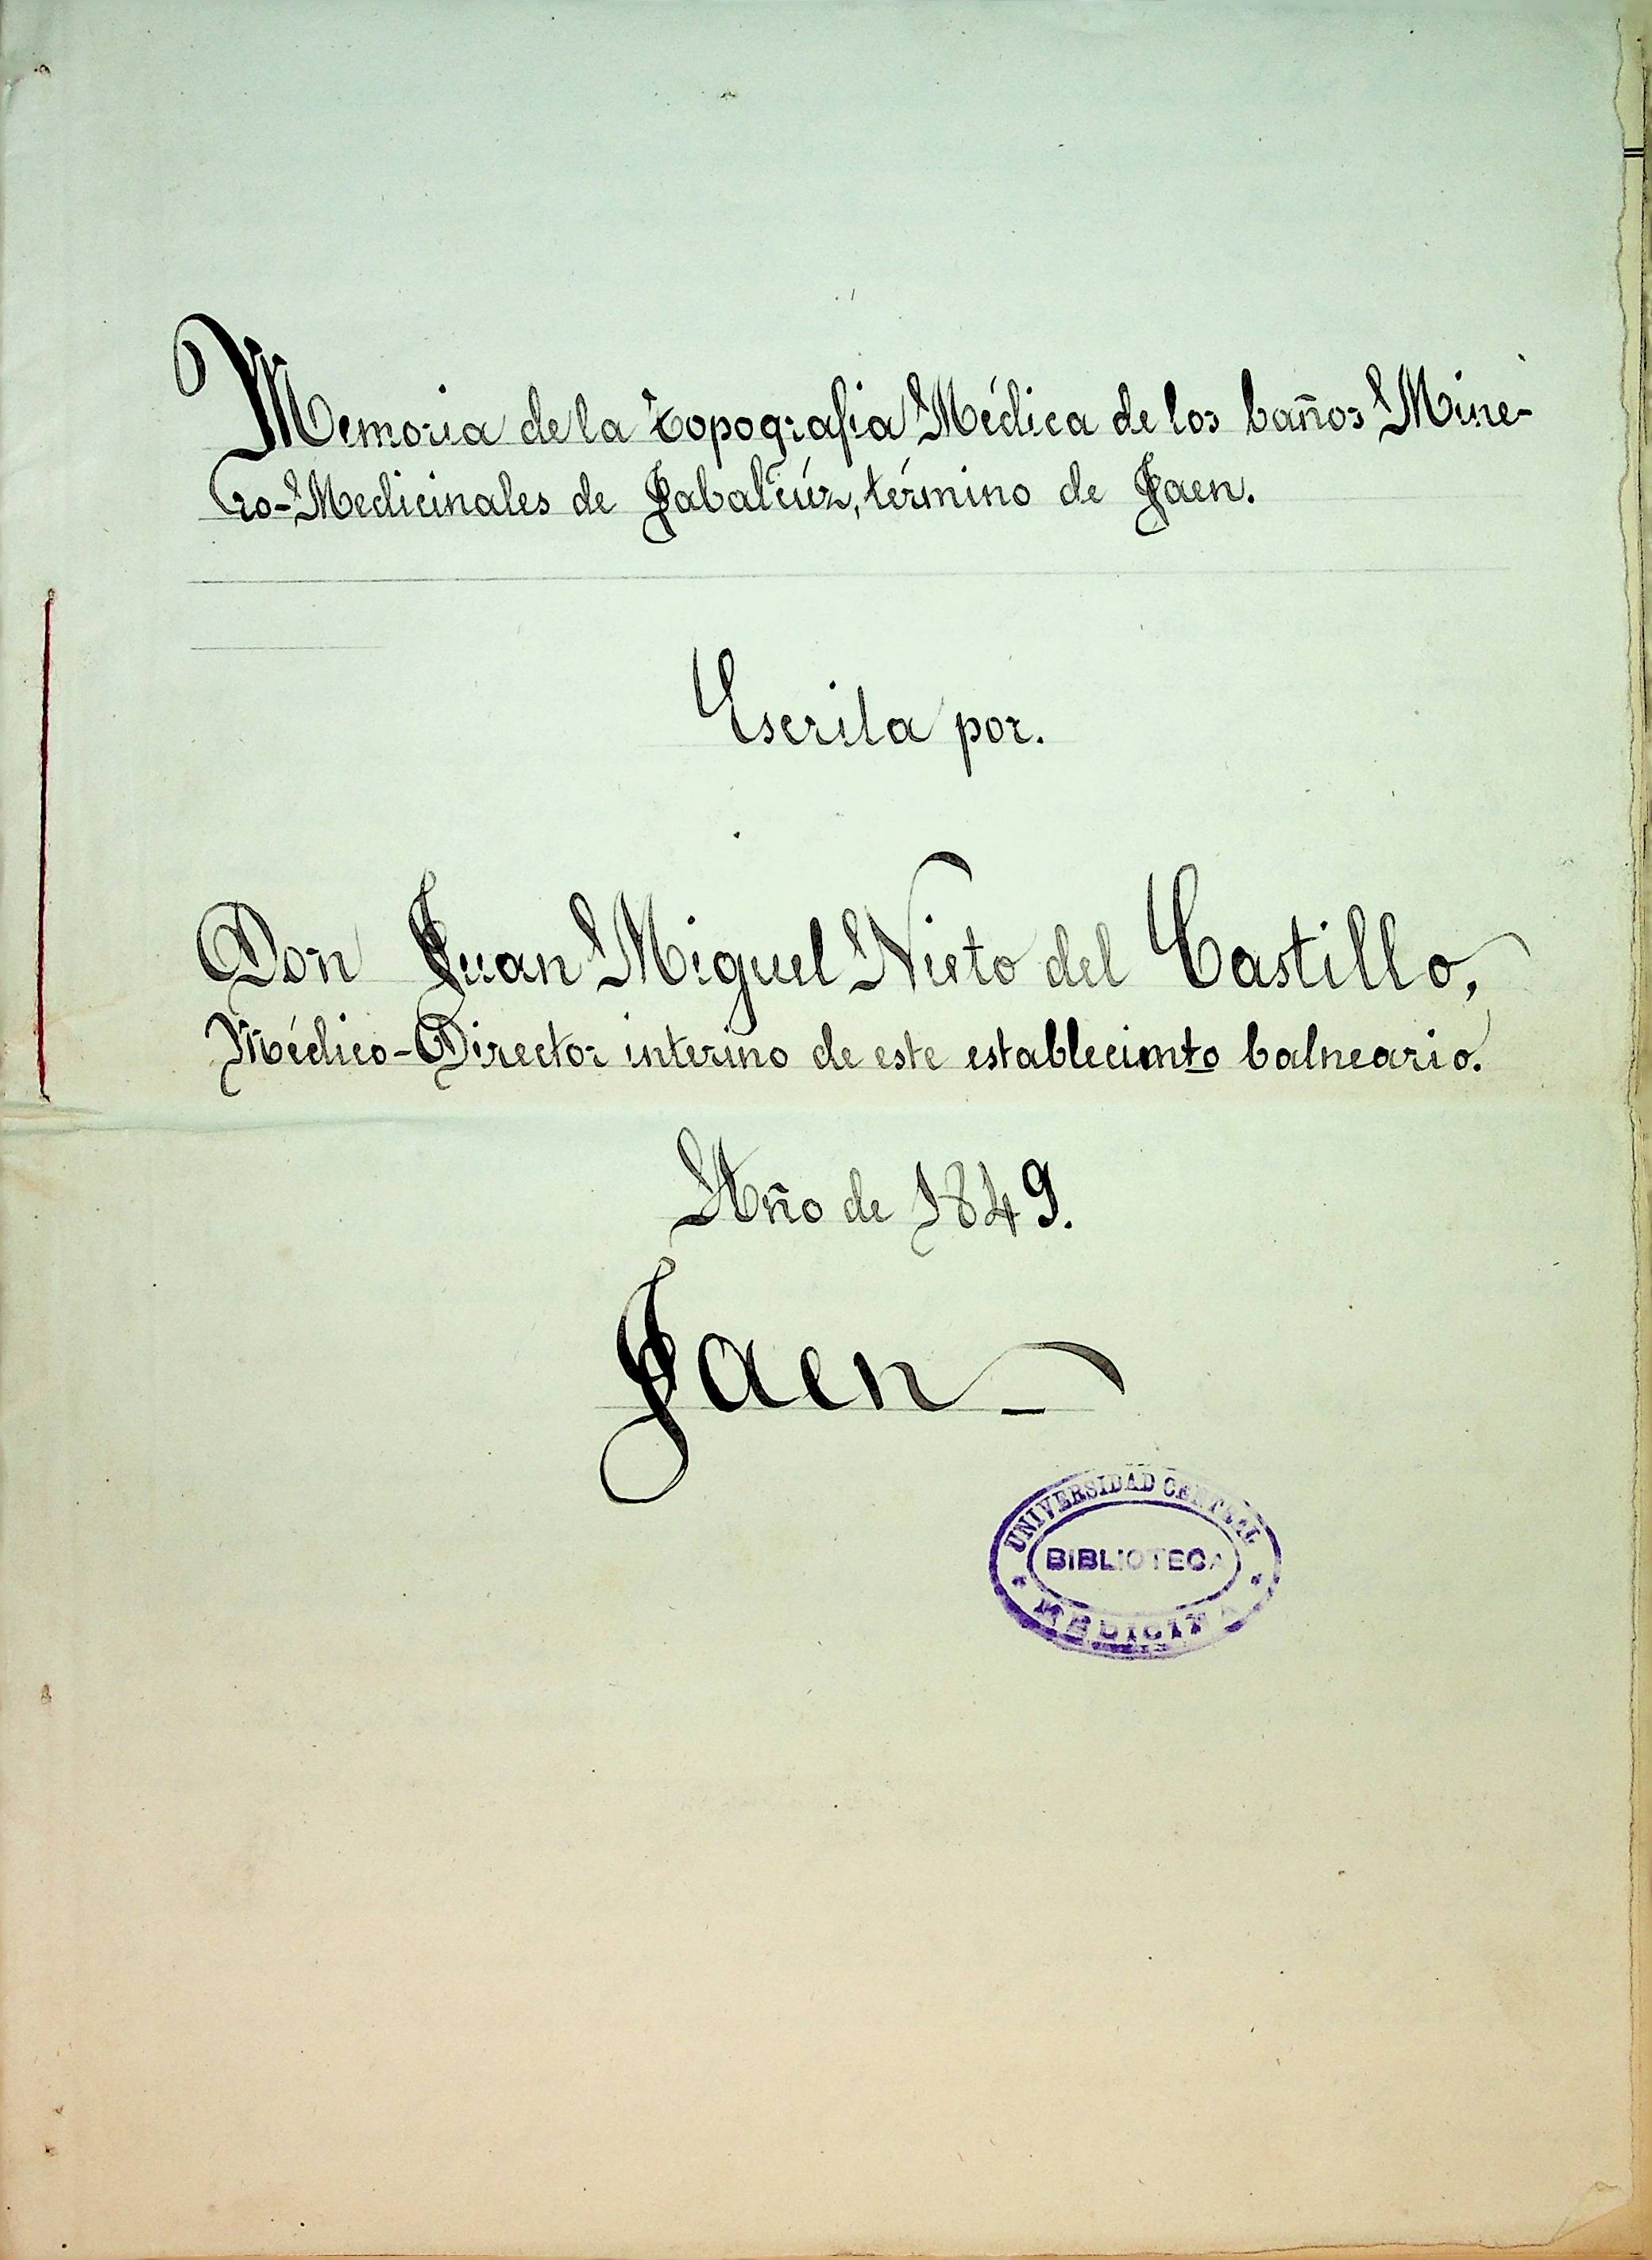 Memoria de la topografia Médica de los baños Mine-
ro-Medicinales de Jabalcúz, término de Jaen.
Escrita por.
Don Juan Miguel Nieto del Castillo,
Médico-Director interino de este establecimto balneario.
Año de 1849.
Jaen
UNIVERSIDAD CENTRAL
BIBLIOTECA
MEDICINA